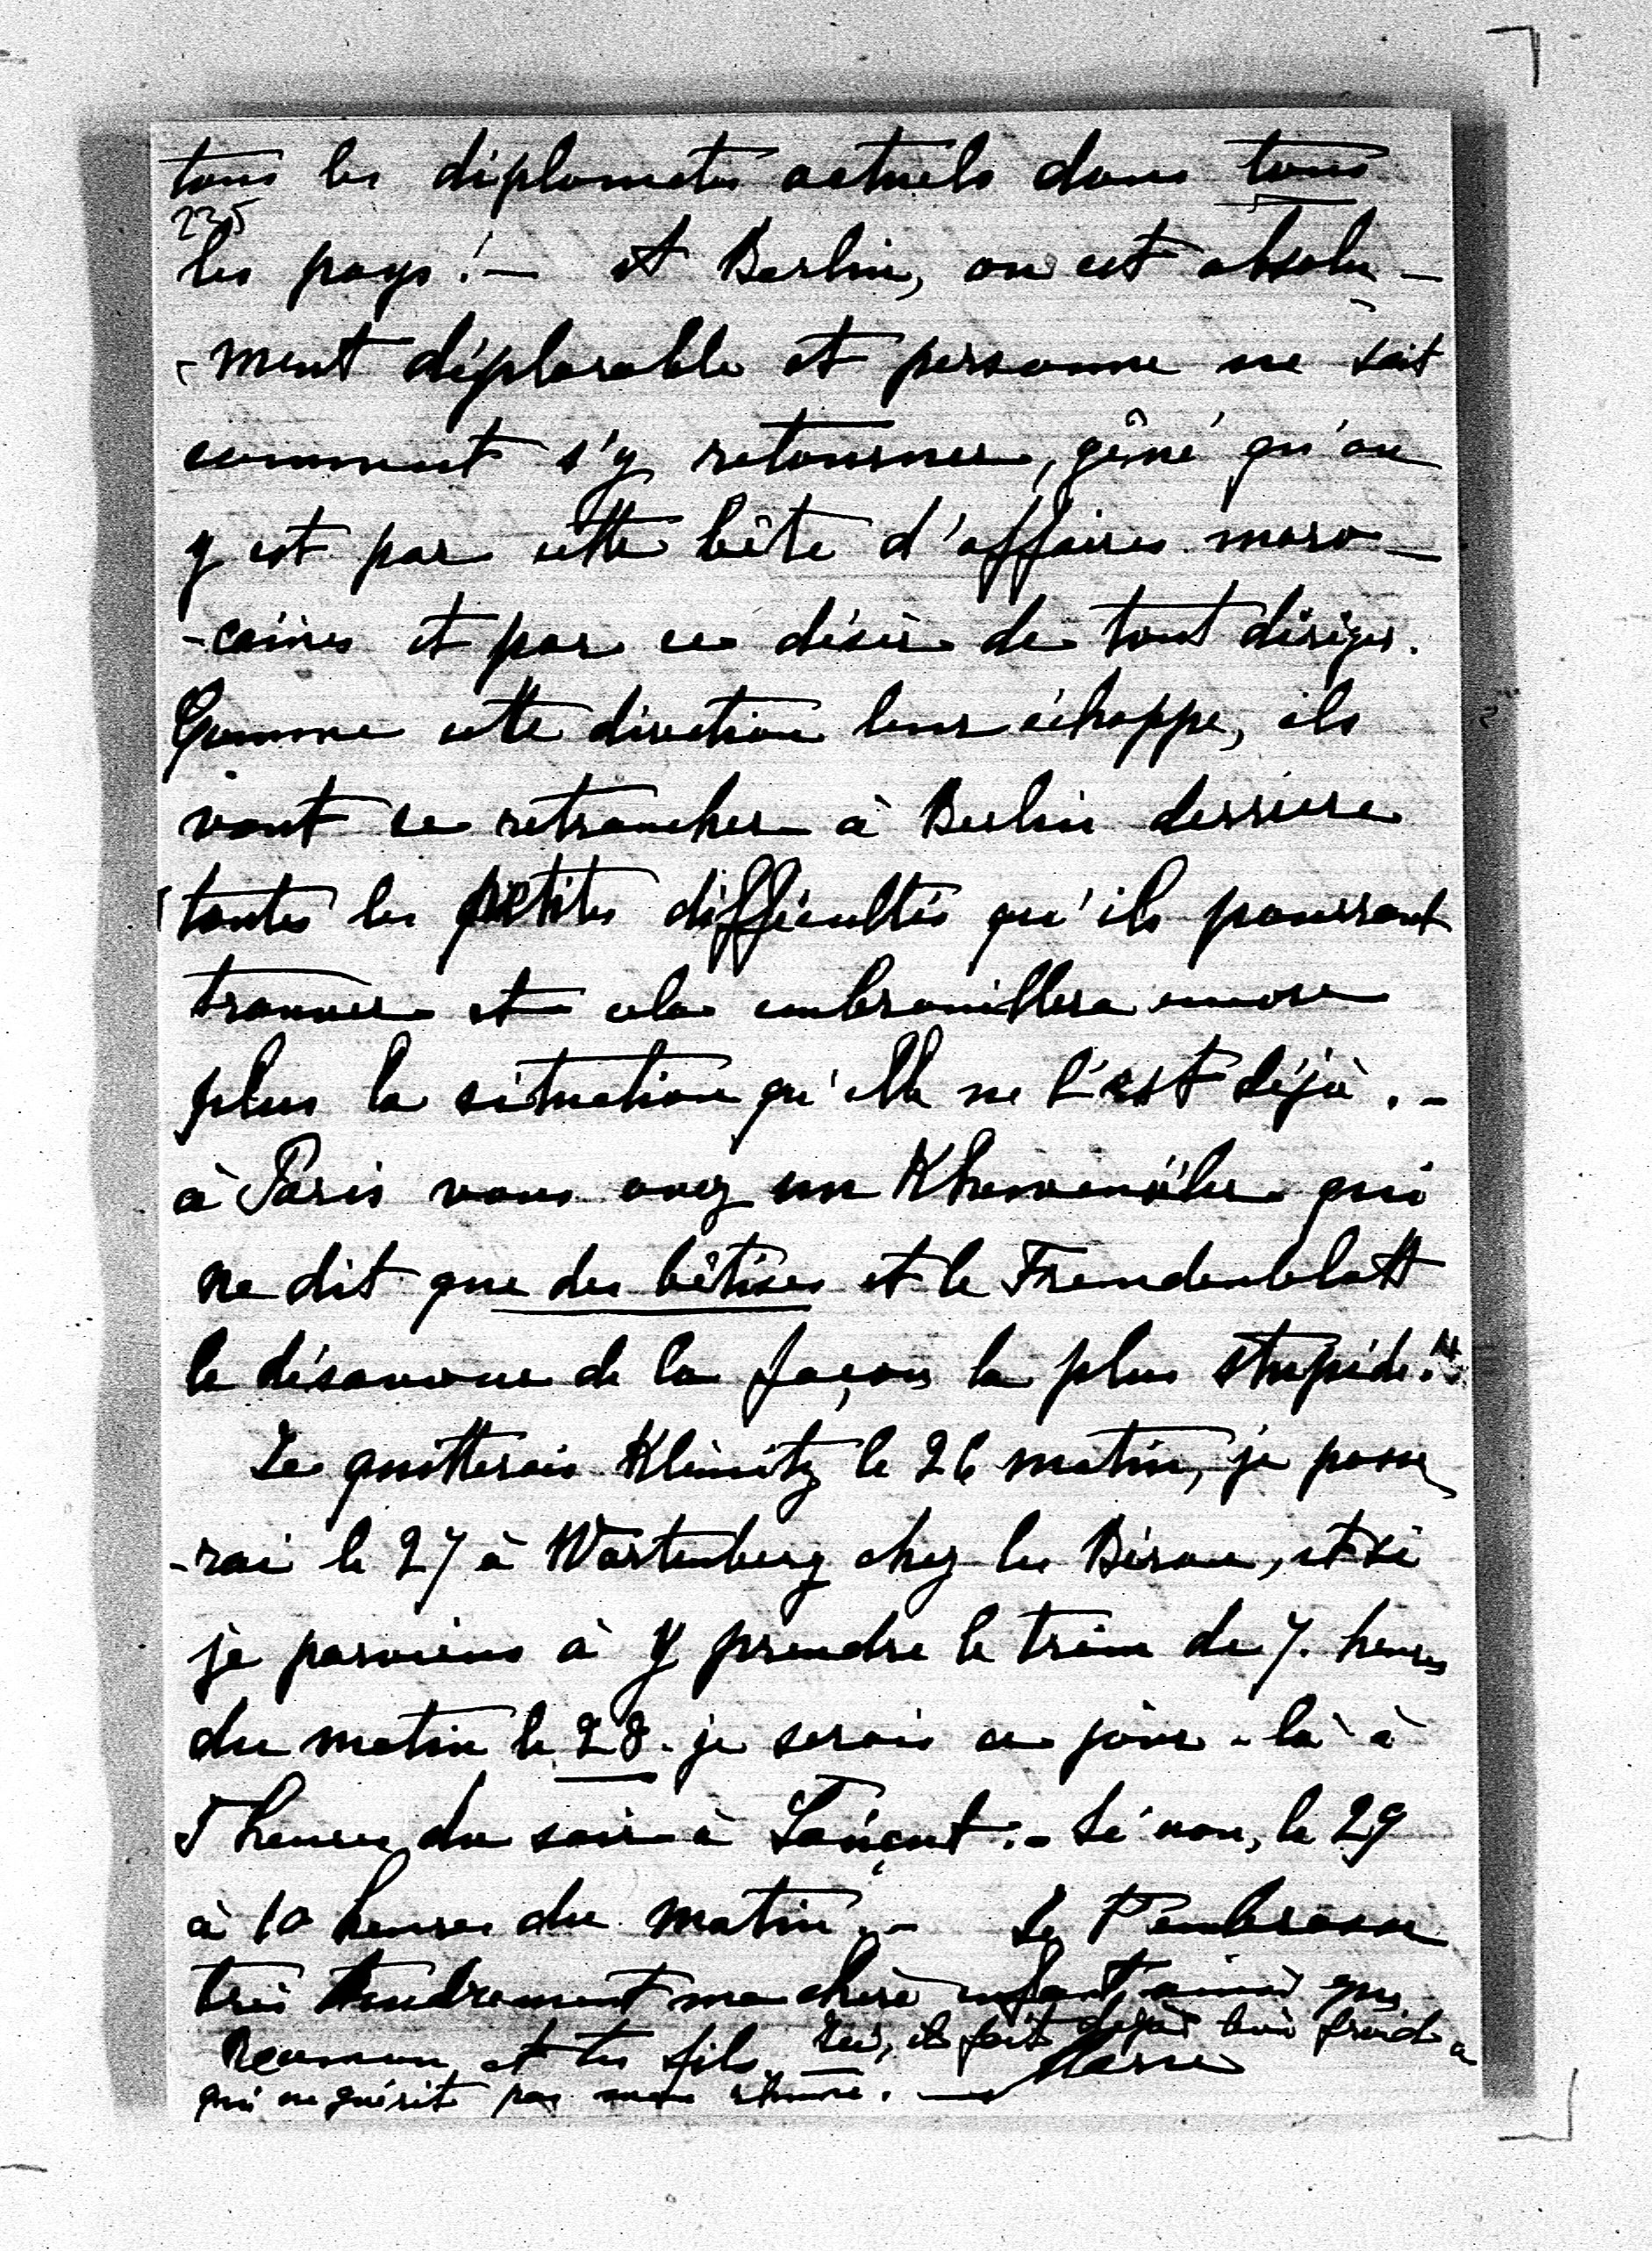 tous les diplomates actuels dans tous
235
les pays! — et Berlin, on est absolu-
-ment déplorable et personne ne sait
comment s'y retourner, gêné qu'on
y est par cette bête d'affaires maro-
-caines et par ce désir de tout diriger.
Comme cette direction leur échappe, ils
vont se retrancher à Berlin derriere
toutes les petites difficultés qu'ils pourront
trouver et cela embrouillera encore
plus la situation qu'elle ne l'est déjà. -
à Paris vous avez un Khevenüller qui
ne dit que des bêtises et le Fremdenblatt
le désavoue de la façon la plus stupide!
Je quitterais Klenitz le 26 matin, je passe-
-rai le 27 à Wartenberg chez les Biron, et si
je parviens à y prendre le train de 7. heures
du matin le 28. je serais ce jour-là à
heures du soir à Lancut :- Si non, le 29
à 10 heures du matin. - Je t'embrasse
très tendrement ma chère enfant, ainsi que
Roman, et tes fils. Ici, il fait déjà très froid
qui ne guérit pas mon rhume. —